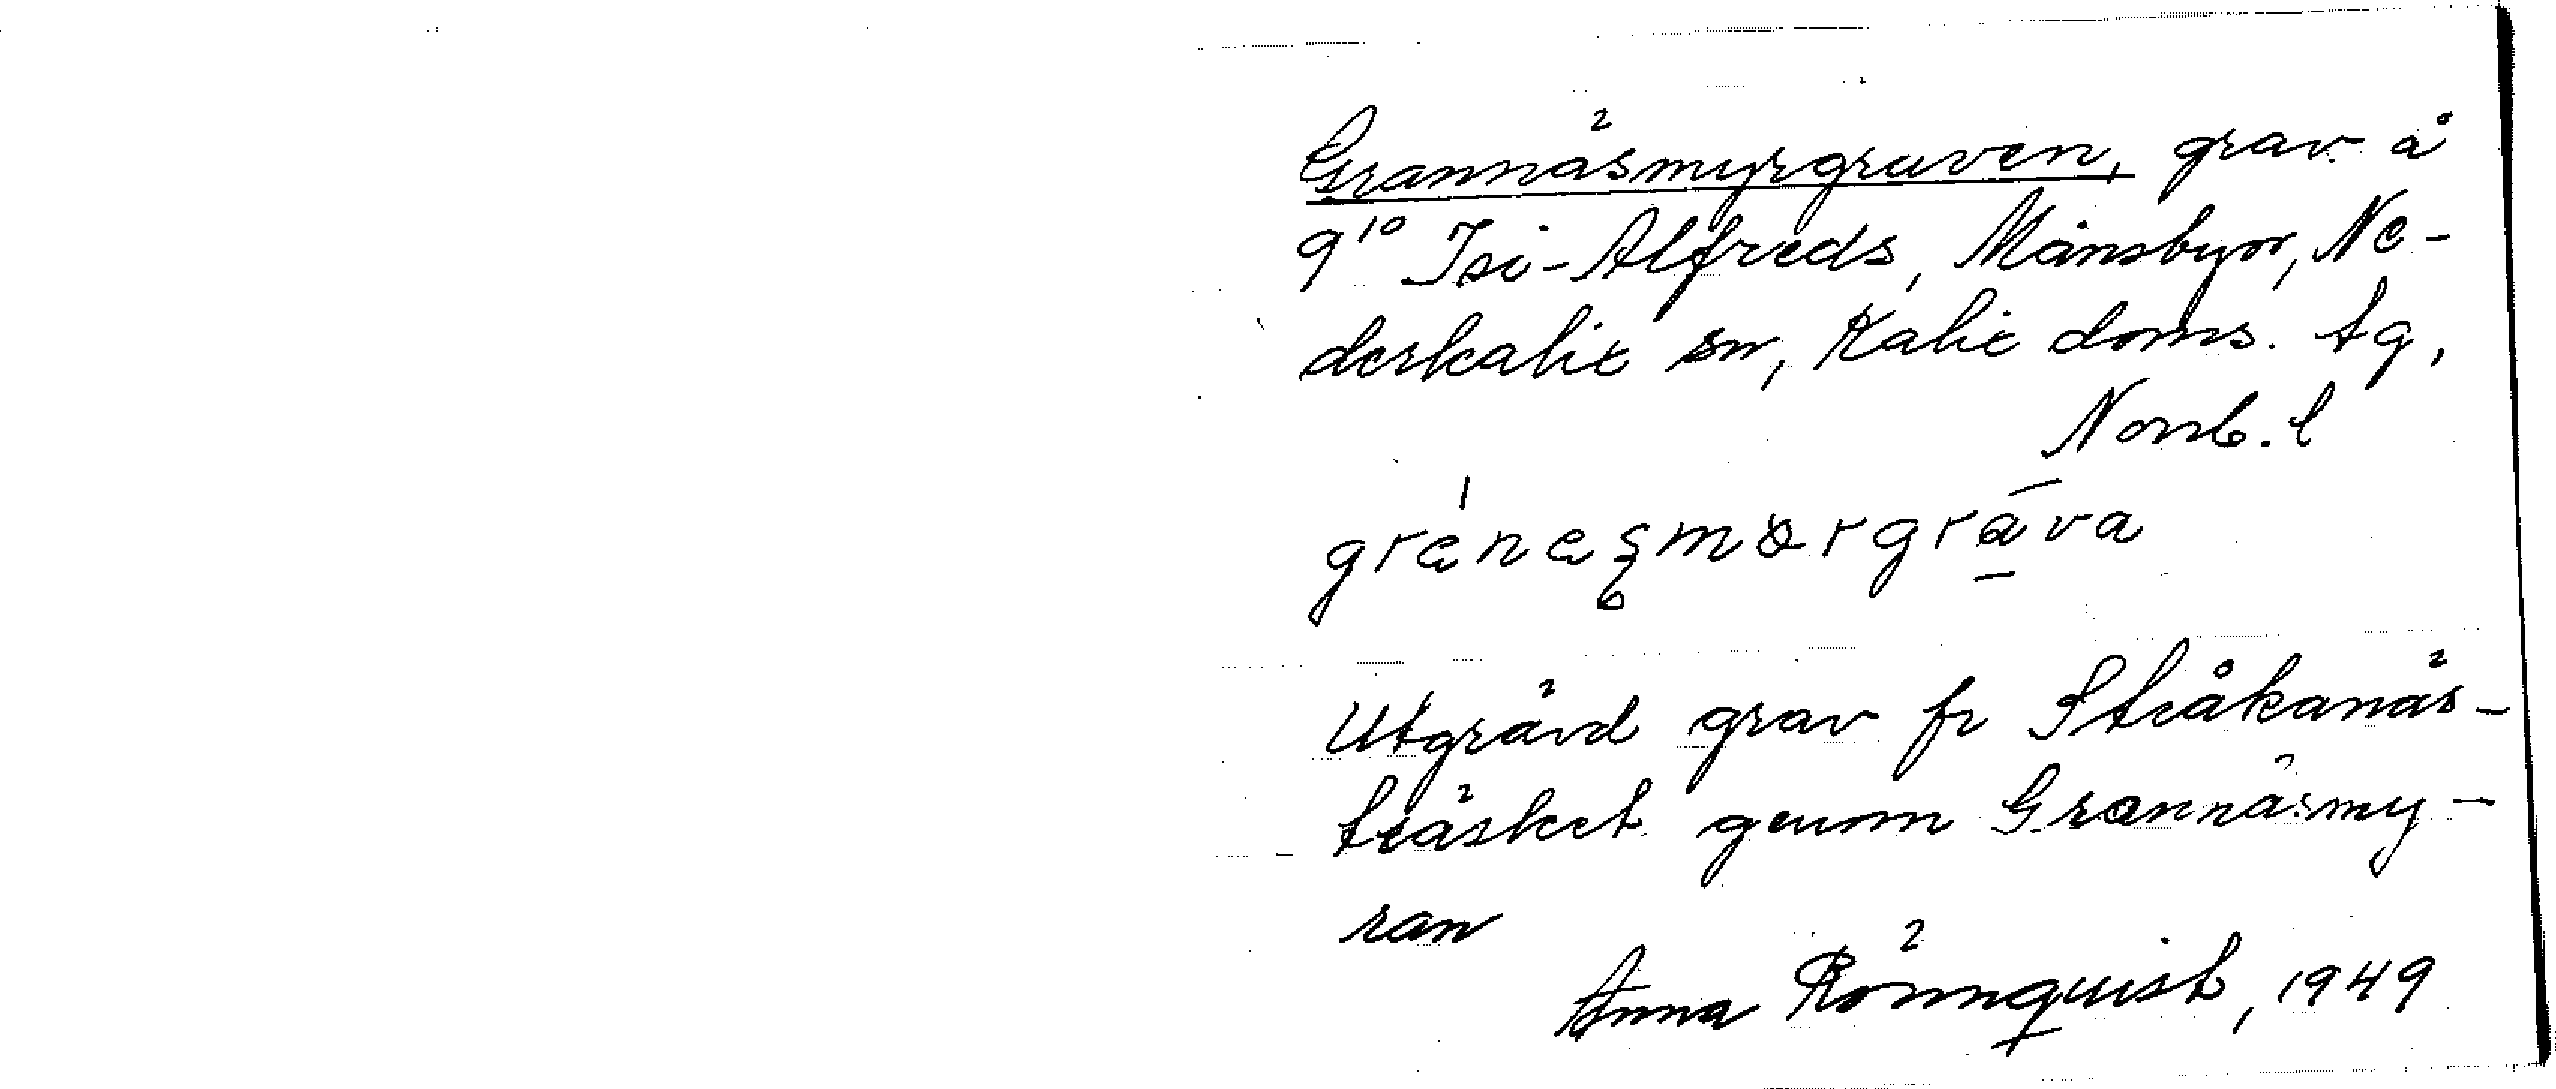 Grannäsmyrgraven, grav å
9¹⁰ Isi-Alfreds, Månsbyn, Ne-
derkalix sn, Kalix doms. tg,
Norrb. l
Utgrävd grav fr Stråkanäs-
träsket genom Grannäsmy-
ran
Anna Rönnquist, 1949